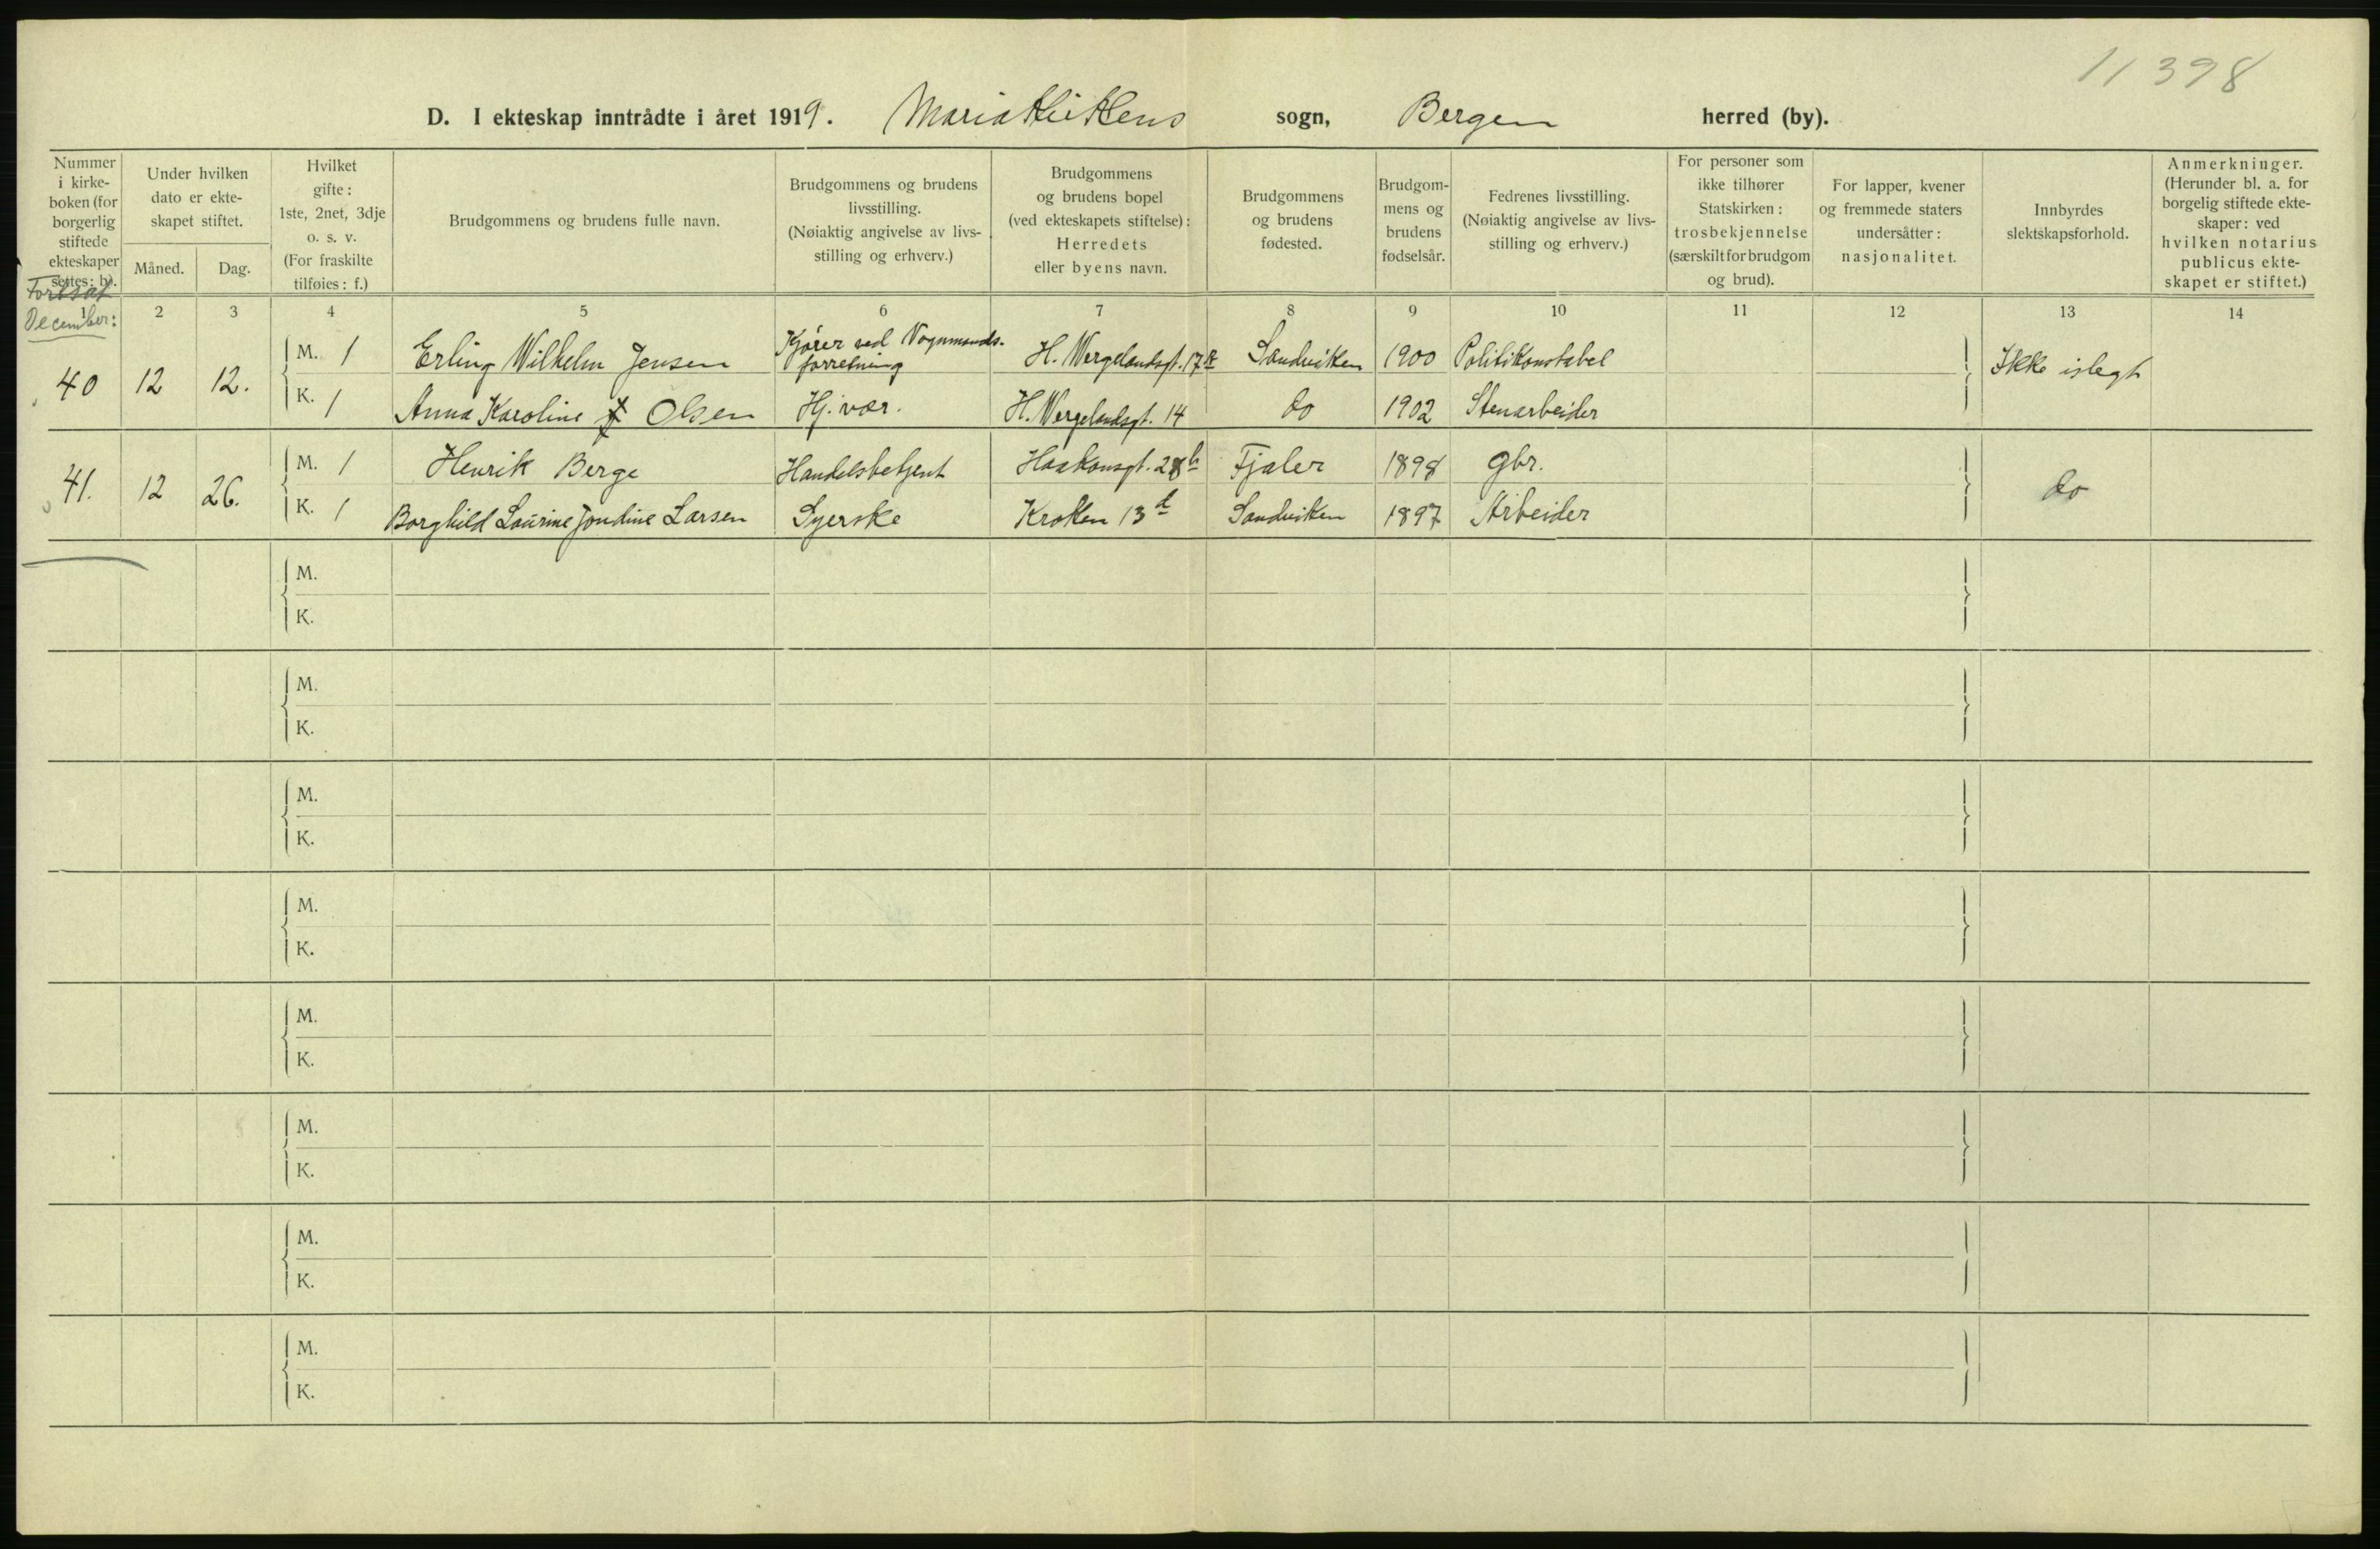 11398
D. I ekteskap inntrådte i året 1919. Mariakirkens sogn, Bergen herred (by).
Nummer i kirkeboken (for borgerlig stiftede ekteskaper settes: b).
Under hvilken dato er ekteskapet stiftet.
Måned. Dag.
Hvilket gifte: 1ste, 2net, 3dje o. s. v. (For fraskilte tilføies: f.)
Brudgommens og brudens fulle navn.
Brudgommens og brudens livsstilling. (Nøiaktig angivelse av livsstilling og erhverv.)
Brudgommens og brudens bopel (ved ekteskapets stiftelse): Herredets eller byens navn.
Brudgommens og brudens fødested.
Brudgommens og brudens fødselsår.
Fedrenes livsstilling. (Nøiaktig angivelse av livsstilling og erhverv.)
For personer som ikke tilhører Statskirken: trosbekjennelse (særskilt for brudgom og brud).
For lapper, kvener og fremmede staters undersåtter: nasjonalitet.
Innbyrdes slektskapsforhold.
Anmerkninger. (Herunder bl. a. for borgelig stiftede ekteskaper: ved hvilken notarius publicus ekteskapet er stiftet.)
Fortsat
December:
1 2 3 4 5 6 7 8 9 10 11 12 13 14
40 12 12. M. 1 Erling Wilhelm Jensen Kjører ved Vognmandsforretning H. Wergelandsgt. 17 Sandviken 1900 Politikonstabel Ikke islegt
K. 1 Anna Karoline Olsen Hj. vær. H. Wergelandsgt. 14 do 1902 Stenarbeider
41. 12 26. M. 1 Henrik Berge Handelsbetjent Haakonsgt. 28 b Fjaler 1898 gbr. do
K. 1 Borghild Laurine Jondine Larsen Syerske Kroken 13 Sandviken 1897 Arbeider
M.
K.
M.
K.
M.
K.
M.
K.
M.
K.
M.
K.
M.
K.
M.
K.